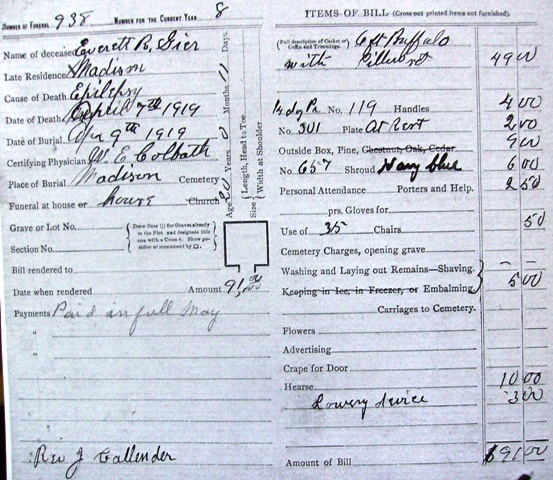 NUMBER OF FUNERAL 938 NUMBER FOR THE CURRENT YEAR 8
Name of deceased Everett R. Gier
Late Residence Madison
Cause of Death Epilepsy
Date of Death April 7th 1919
Date of Burial Apr 9th 1919
Certifying Physician W. E. Colbath
Place of Burial Madison Cemetery
Funeral at house or house Church
Age 20 Years Months 11 Days
Size { Length, Head to Toe
Width at Shoulder
Grave or Lot No.
Section No.
{ Draw lines ||| for Graves already
in the Plot and designate this
one with a Cross †. Show po-
sition of monument by □. }
Bill rendered to
Date when rendered Amount 91.00
Payments Paid in full May
"
"
Rev J Callender
ITEMS OF BILL (Cross out printed items not furnished).
(Full description of Casket or
Coffin and Trimmings. 6 ft Buffalo
with 49 00
No. 119 Handles 4 00
No. 301 Plate At Rest 2 00
Outside Box, Pine, Chestnut, Oak, Cedar 9 00
No. 657 Shroud Navy blue 6 00
Personal Attendance Porters and Help. 2 50
prs. Gloves for
Use of 35 Chairs 50
Cemetery Charges, opening grave
Washing and Laying out Remains—Shaving. – –
Keeping in Ice, in Freezer, or Embalming 5 00
Carriages to Cemetery.
Flowers
Advertising
Crape for Door
Hearse 10 00
Lowery device 3 00
Amount of Bill $91 00